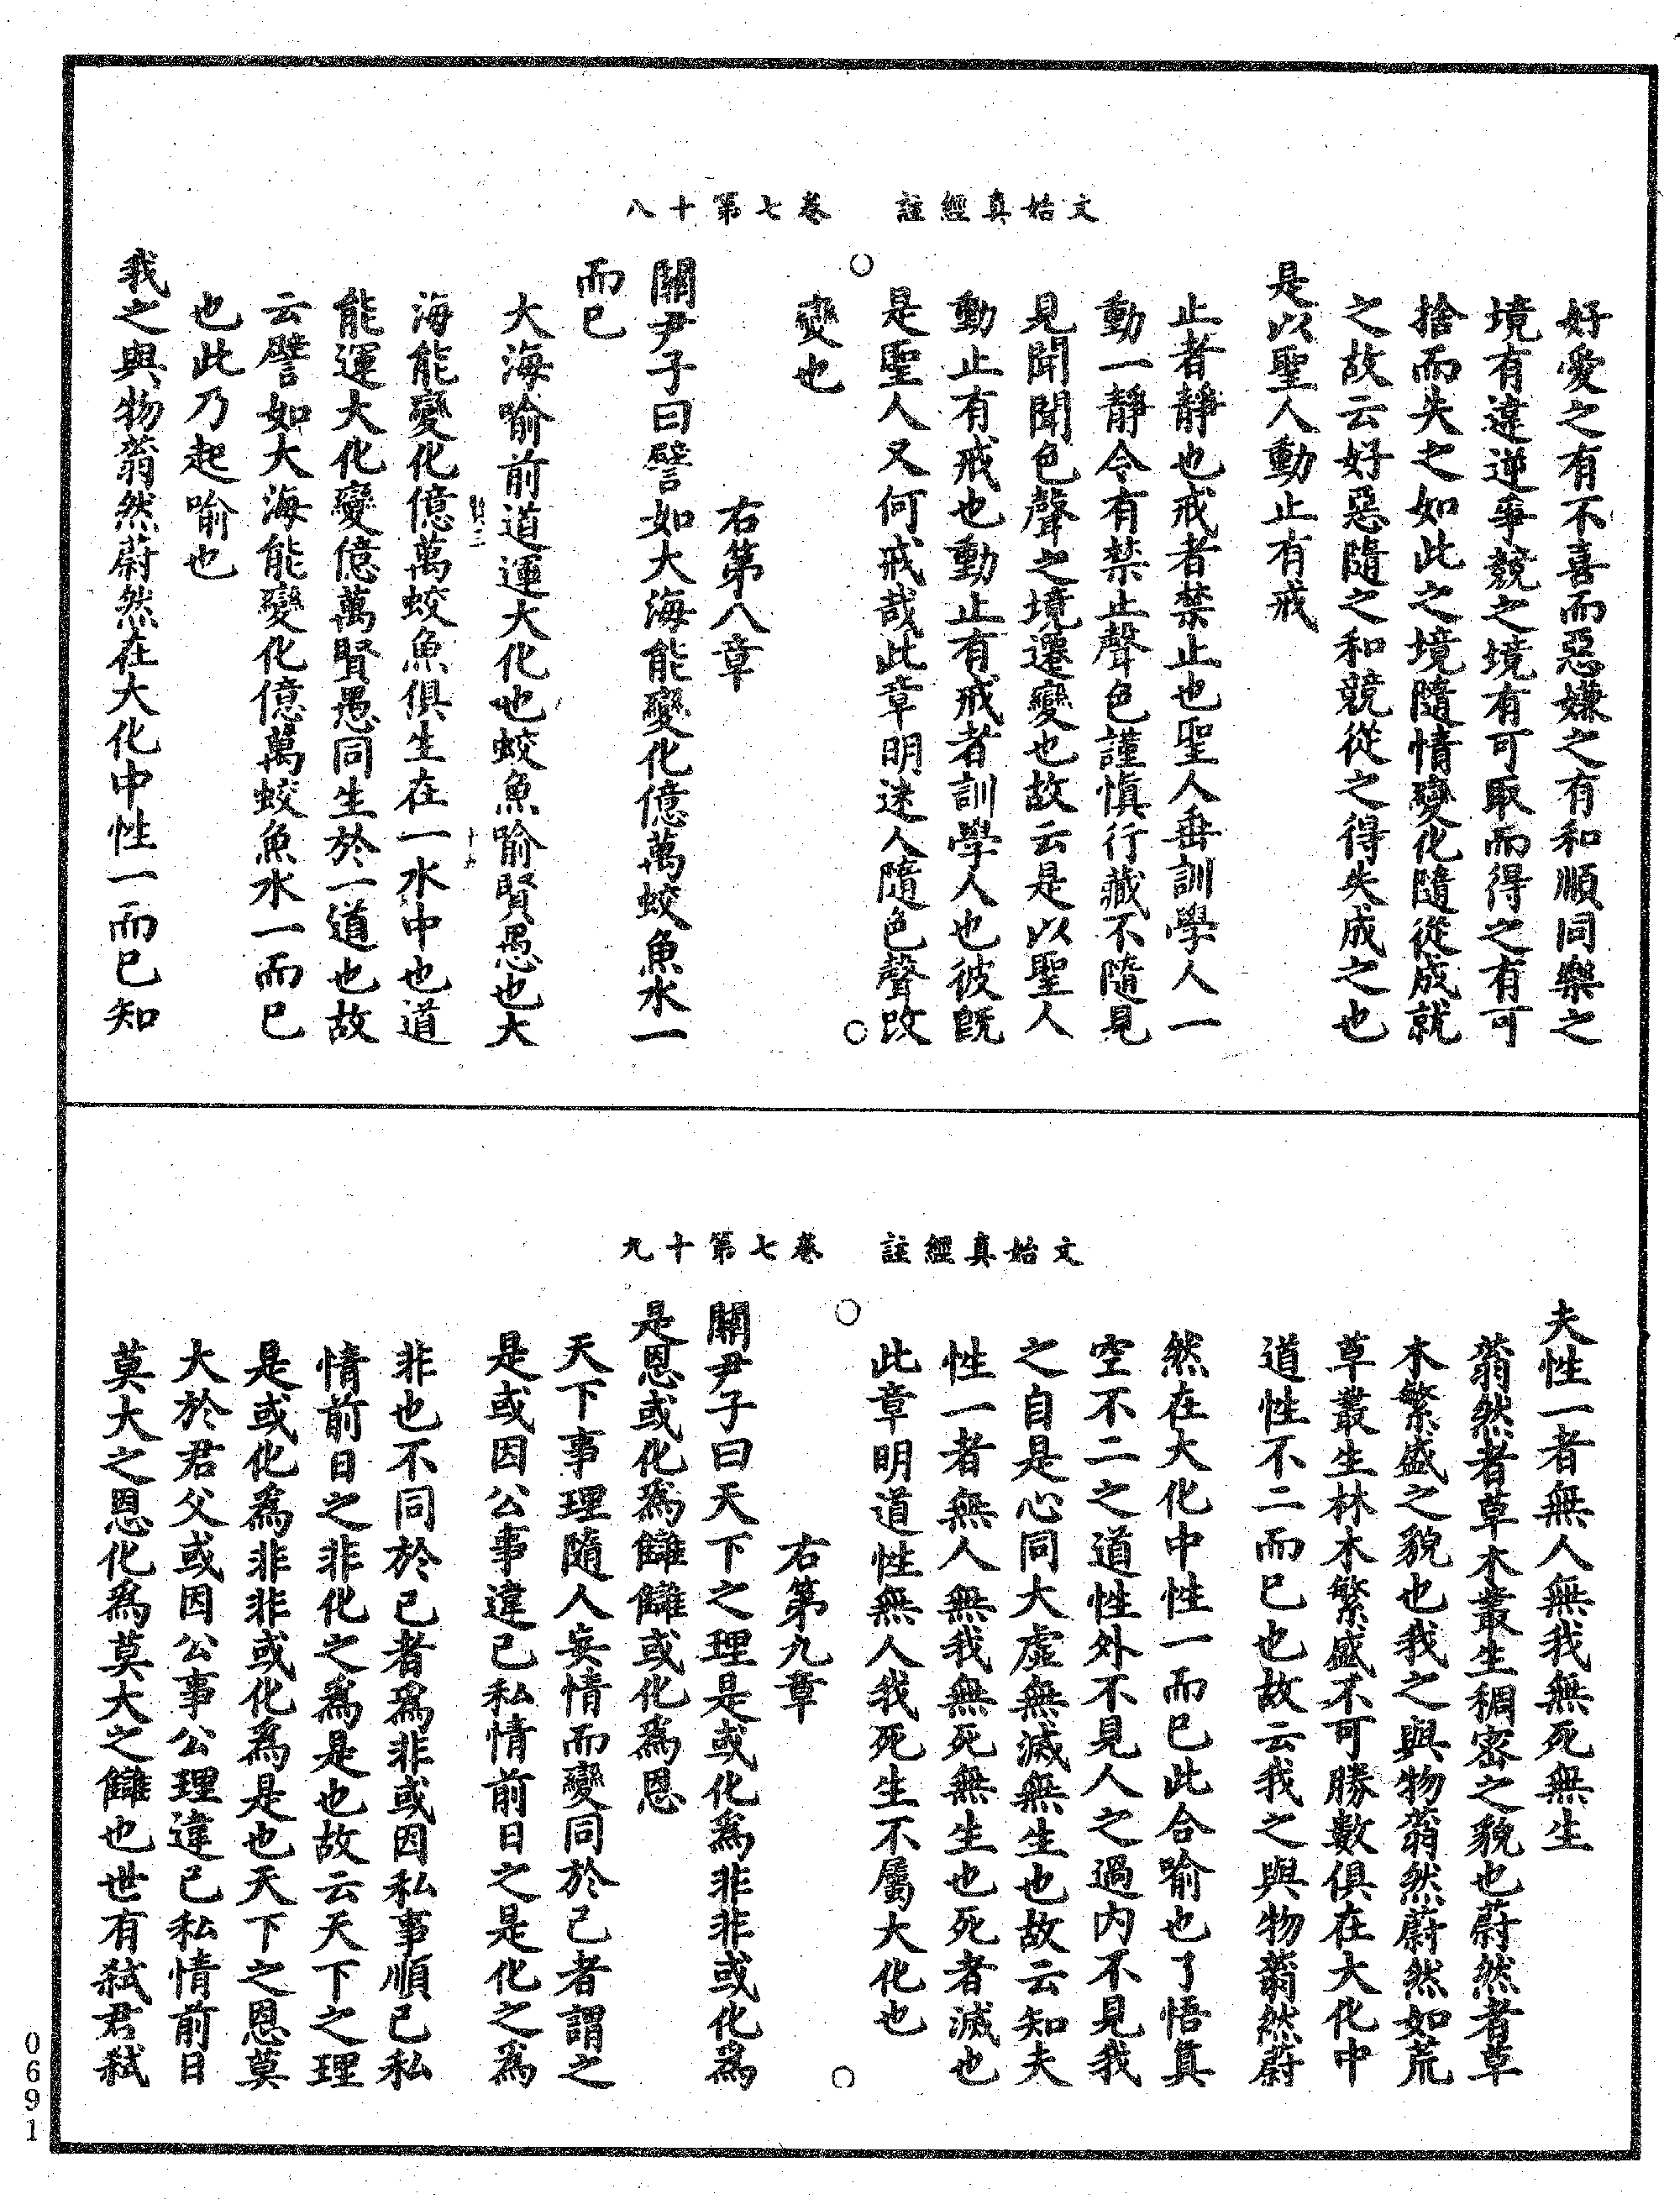 文始真經註　卷七第十八
好愛之有不喜而惡嫌之有和順同樂之
境有違逆爭競之境有可取而得之有可
捨而失之如此之境隨情變化隨從成就
之故云好惡隨之和競從之得失成之也
是以聖人動止有戒
止者靜也戒者禁止也聖人垂訓學人一
動一靜令有禁止聲色謹慎行藏不隨見
見聞聞色聲之境遷變也故云是以聖人
動止有戒也動止有戒者訓學人也彼既
是聖人又何戒哉此章明迷人隨色聲改
變也
右第八章
關尹子曰譬如大海能變化億萬蛟魚水一
而已
大海喻前道運大化也蛟魚喻賢愚也大
海能變化億萬蛟魚俱生在一水中也道
能運大化變億萬賢愚同生於一道也故
云譬如大海能變化億萬蛟魚水一而已
也此乃起喻也
我之與物蓊然蔚然在大化中性一而已知
文始真經註　卷七第十九
夫性一者無人無我無死無生
蓊然者草木叢生稠密之貌也蔚然者草
木繁盛之貌也我之與物蓊然蔚然如荒
草叢生林木繁盛不可勝數俱在大化中
道性不二而已也故云我之與物蓊然蔚
然在大化中性一而已此合喻也了悟真
空不二之道性外不見人之過內不見我
之自是心同大虛無滅無生也故云知夫
性一者無人無我無死無生也死者滅也
此章明道性無人我死生不屬大化也
右第九章
關尹子曰天下之理是或化為非非或化為
是恩或化為讎讎或化為恩
天下事理隨人妄情而變同於己者謂之
是或因公事違己私情前日之是化之為
非也不同於己者為非或因私事順己私
情前日之非化之為是也故云天下之理
是或化為非非或化為是也天下之恩莫
大於君父或因公事公理違己私情前日
莫大之恩化為莫大之讎也世有弒君弒
0691